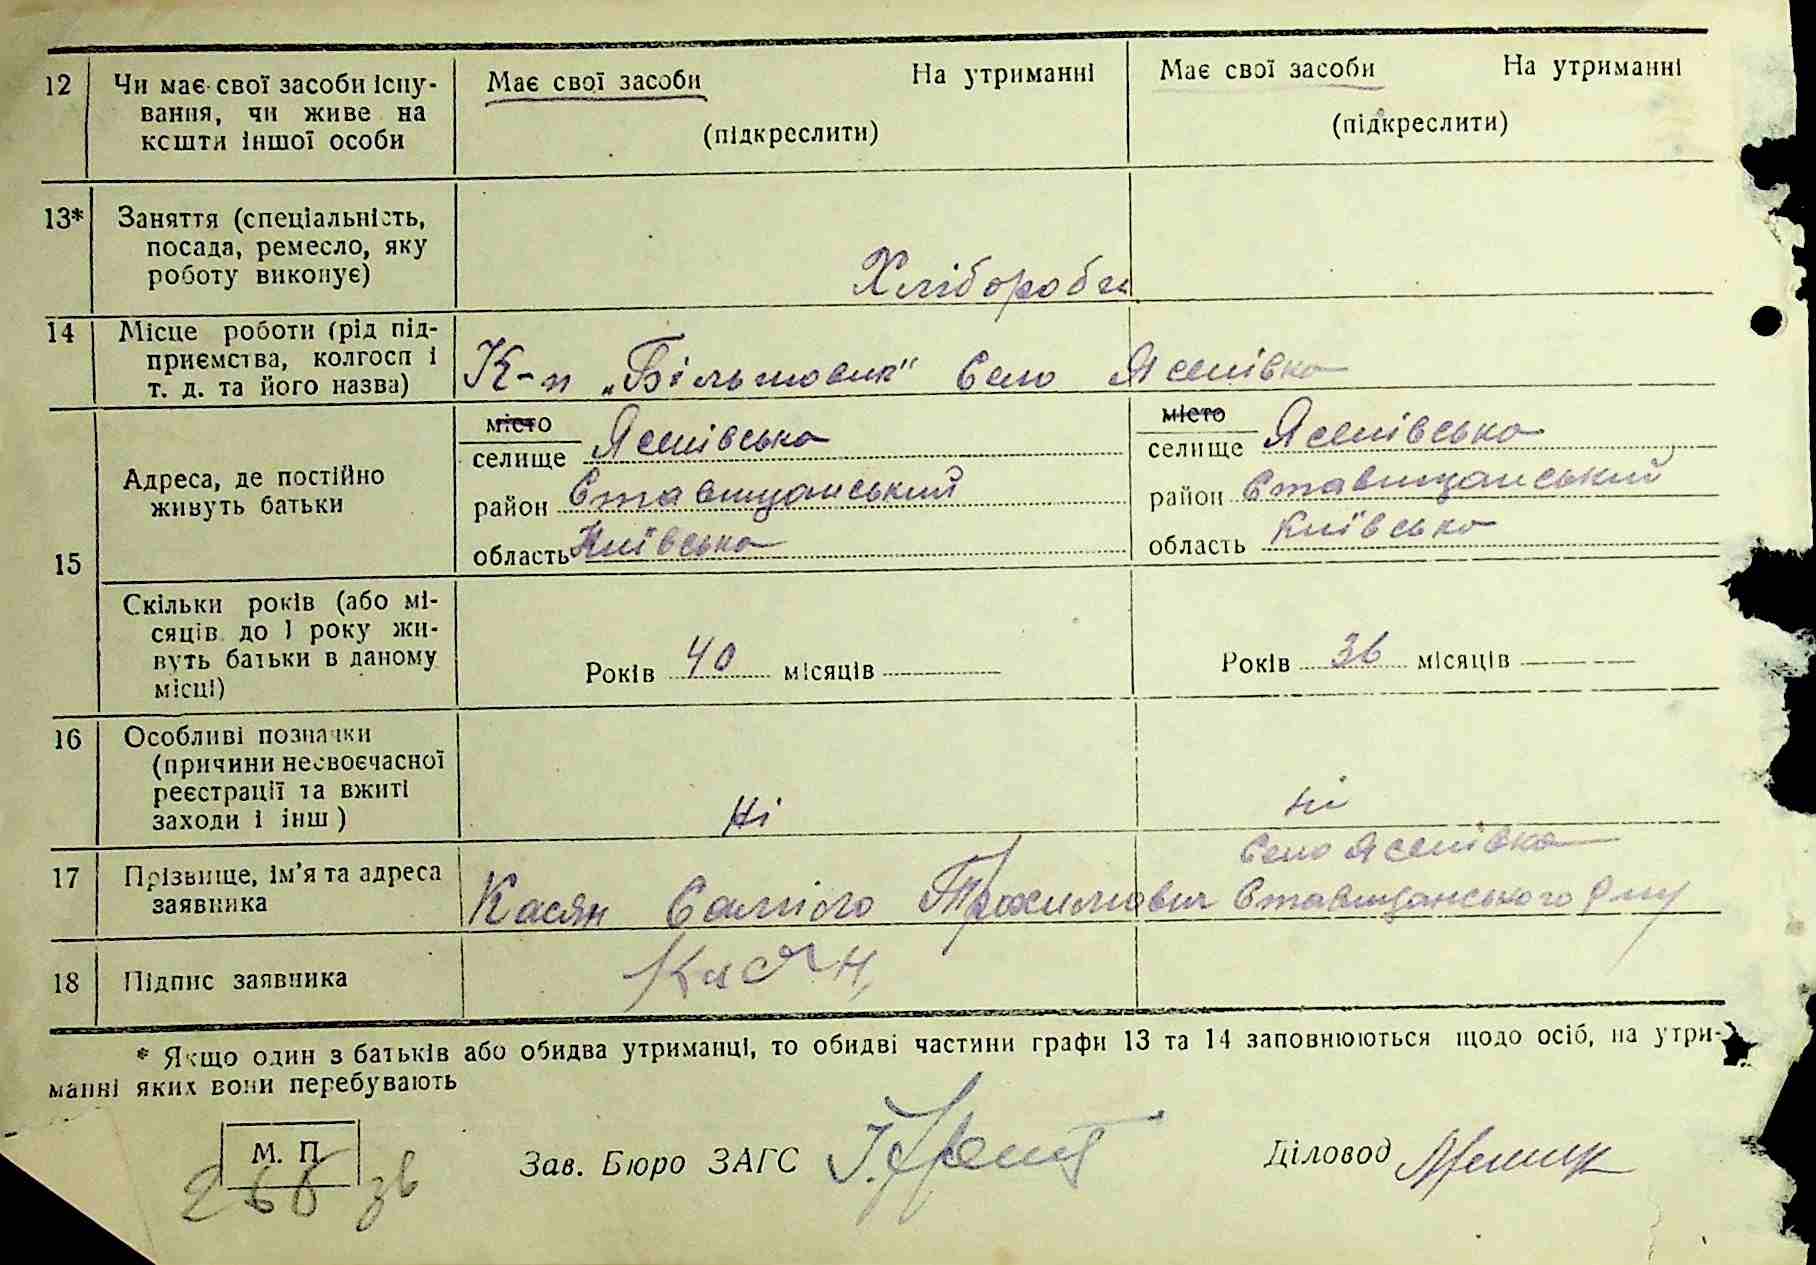 12 Чи має свої засоби існу-
вання, чи живе на
кошти іншої особи
Має свої засоби На утриманні
(підкреслити)
Має свої засоби На утриманні
(підкреслити)
13* Заняття (спеціальність,
посада, ремесло, яку
роботу виконує)
Хлібороби
14 Місце роботи (рід під-
приємства, колгосп і
т. д. та його назва)
К-п „Більшовик" село Ясенівка
15 Адреса, де постійно
живуть батьки
місто
селище Ясенівська
район Ставищанський
область Київська
місто
селище Ясенівська
район Ставищанський
область Київська
Скільки років (або мі-
сяців до 1 року жи-
вуть батьки в даному
місці)
Років 40 місяців
Років 36 місяців
16 Особливі позначки
(причини несвоєчасної
реєстрації та вжиті
заходи і інш)
Ні
ні
17 Прізвище, ім'я та адреса
заявника
Касян Самійло Трохимович
село Ясенівка
Ставищанського р-ну
18 Підпис заявника
Касян
* Якщо один з батьків або обидва утриманці, то обидві частини графи 13 та 14 заповнюються щодо осіб, на утри-
манні яких вони перебувають
М. П.
Зав. Бюро ЗАГС
Діловод